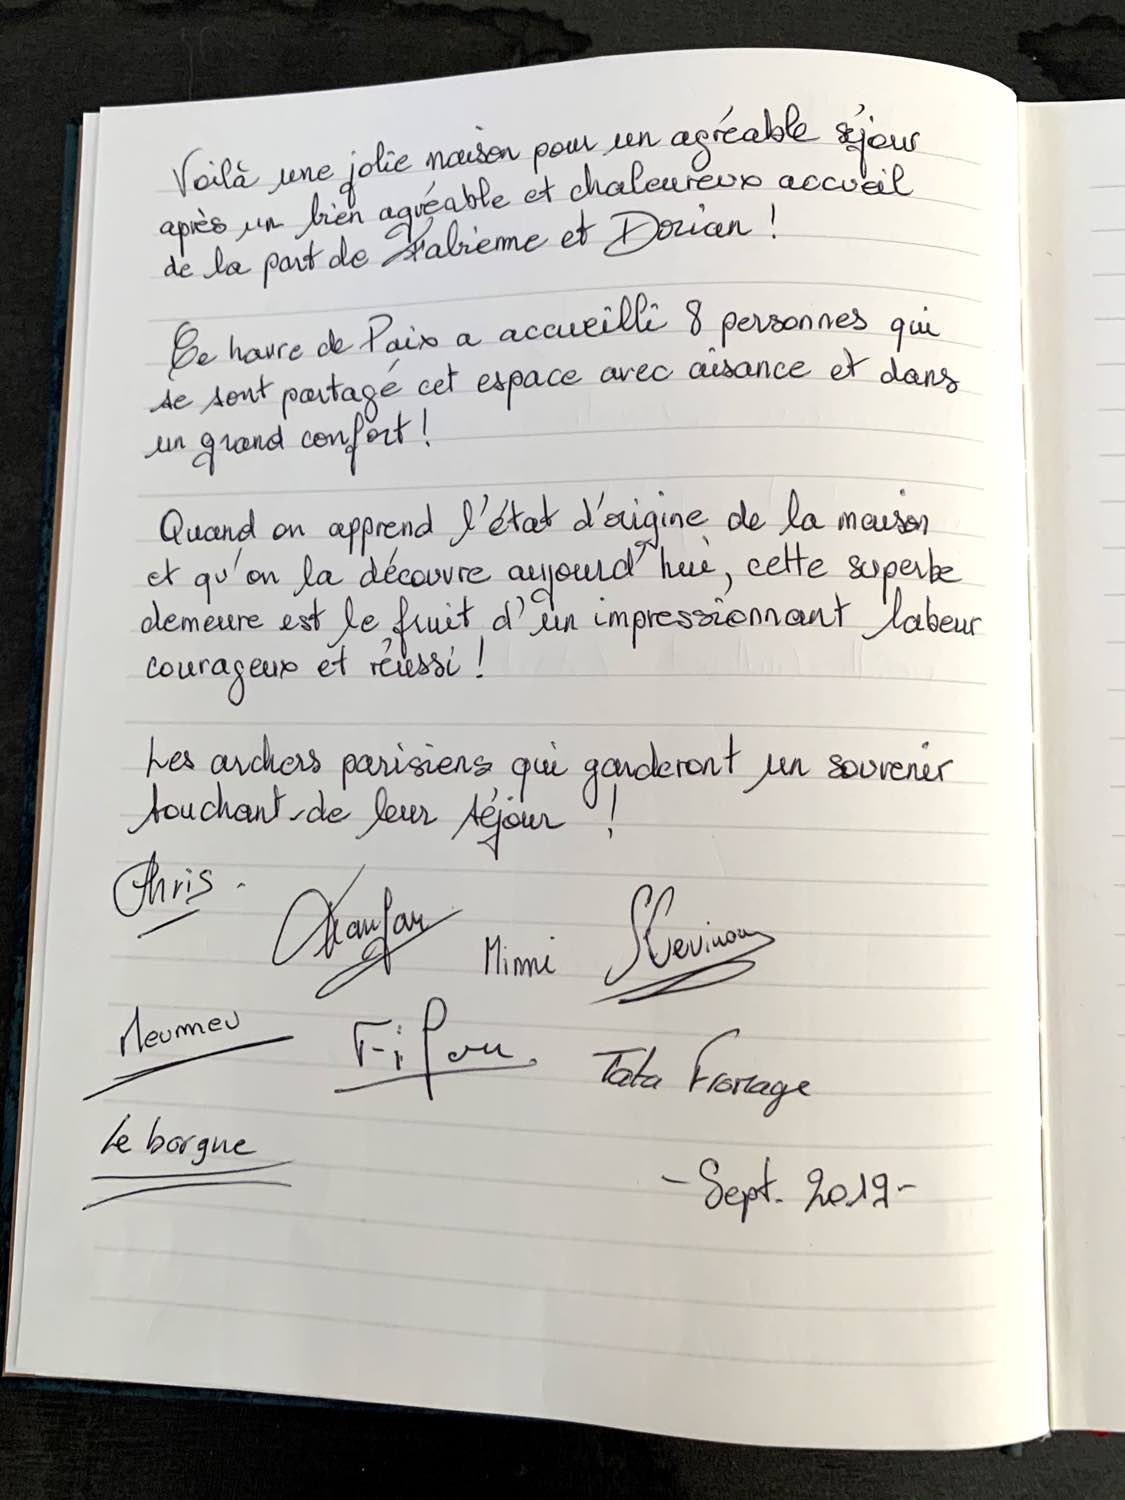 Voilà une jolie maison pour un agréable séjour
après un bien agréable et chaleureux accueil
de la part de Fabienne et Dorian !
Ce havre de Paix a accueilli 8 personnes qui
se sont partagé cet espace avec aisance et dans
un grand confort !
Quand on apprend l'état d'origine de la maison
et qu'on la découvre aujourd'hui, cette superbe
demeure est le fruit d'un impressionnant labeur
courageux et réussi !
Les archers parisiens qui garderont un souvenir
touchant de leur séjour !
Chris.
Mimi
Neumeu
Fifou.
Tata Fromage
Le borgne
- Sept. 2019 -